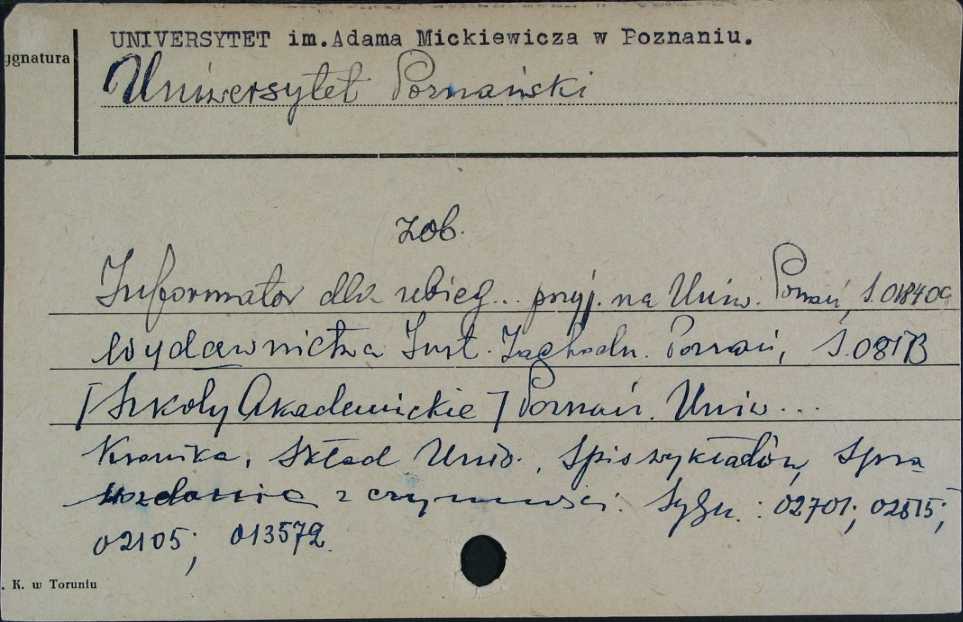 UNIWERSYTET im.Adama Mickiewicza w Poznaniu.
ygnatura
Uniwersytet Poznański
zob.
Informator dla ubieg... przyj. na Uniw. Poznań, S.01840
Wydawnictwa Inst. Zachodn. Poznań, S.081B
[Szkoły Akademickie] Poznań. Uniw...
Kronika, Skład Uniw., Spis wykładów, Spra
wozdania z czynności. Sygn.: 02701; 02815;
02105; 013572
. K. w Toruniu